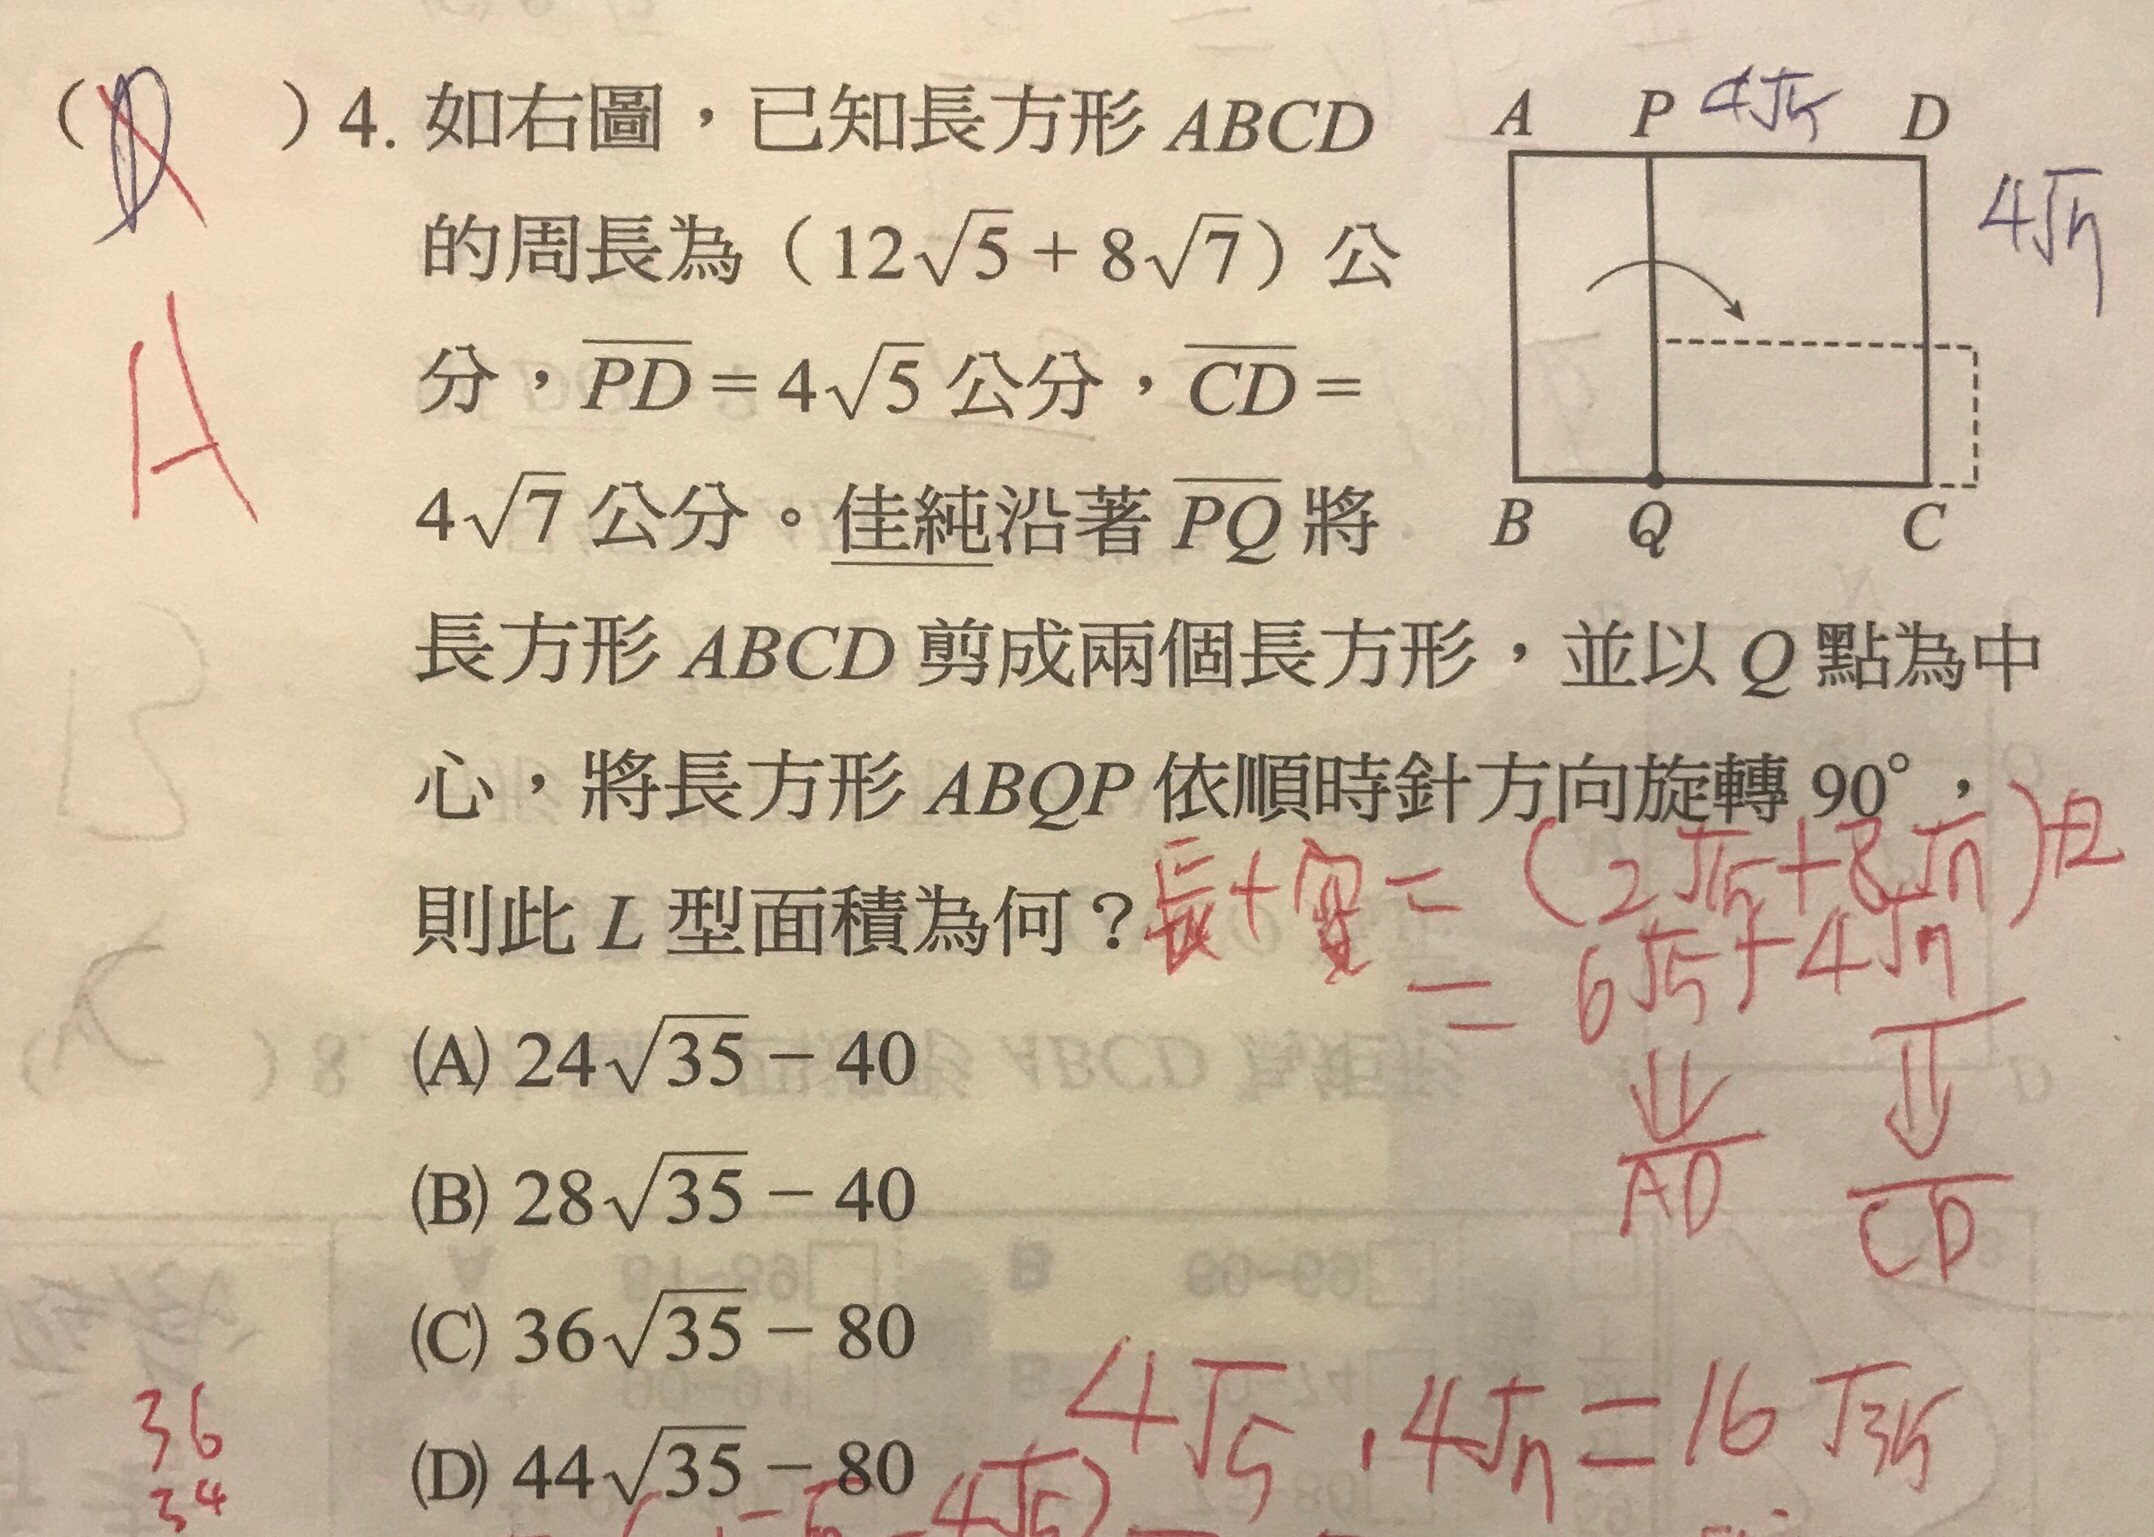 (D)4. 如右圖，已知長方形 ABCD
的周長為（12√5 + 8√7）公
分，PD = 4√5 公分，CD =
4√7 公分。佳純沿著 PQ 將
長方形 ABCD 剪成兩個長方形，並以 Q 點為中
心，將長方形 ABQP 依順時針方向旋轉 90°，
則此 L 型面積為何？
(A) 24√35 − 40
(B) 28√35 − 40
(C) 36√35 − 80
(D) 44√35 − 80
A P 4√5 D
4√7
B Q C
A
長+寬 = (12√5+8√7)÷2
= 6√5+4√7
AD
CD
4√5 . 4√7 = 16√35
36
34